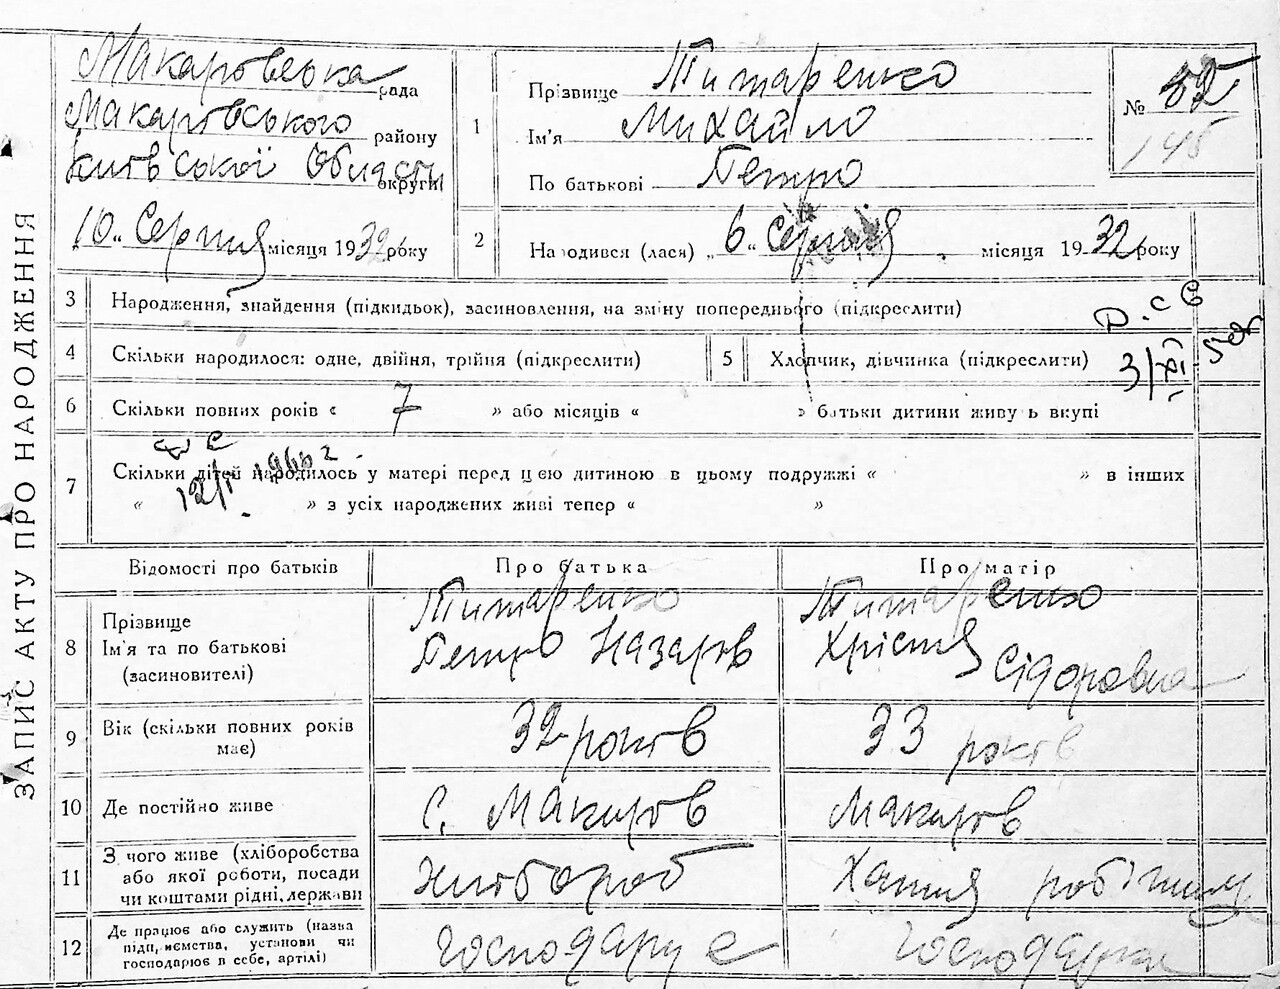 ЗАПИС АКТУ ПРО НАРОДЖЕННЯ
Макаровська рада
Макаровського району
Київської Області округи
10 „ Серпня місяця 1932 року
1
Прізвище Титаренко
Ім'я Михайло
По батькові Петро
№ 82
145
2
Народився (лася) „ 6 „ Серпня місяця 1932 року
3 Народження, знайдення (підкидьок), засиновлення, на зміну попереднього (підкреслити)
4 Скільки народилося: одне, двійня, трійня (підкреслити)
5 Хлопчик, дівчинка (підкреслити)
3/XI
6 Скільки повних років « 7 » або місяців « » батьки дитини живуть вкупі
12/I 1966 г.
7 Скільки дітей народилось у матері перед цією дитиною в цьому подружжі « » в інших
« » з усіх народжених живі тепер « »
Відомості про батьків Про батька Про матір
8 Прізвище
Ім'я та по батькові
(засиновителі)
Титаренко
Петро Назаров
Титаренко
Христя
Сідоровна
9 Вік (скільки повних років має) 32 років 33 років
10 Де постійно живе с. Макаров Макаров
11 З чого живе (хліборобства
або якої роботи, посади
чи коштами рідні, держави
Хлібороб
Хатня робітниц
12 Де працює або служить (назва
підприємства, установи чи
господарює в себе, артілі)
Господарує
Господарка